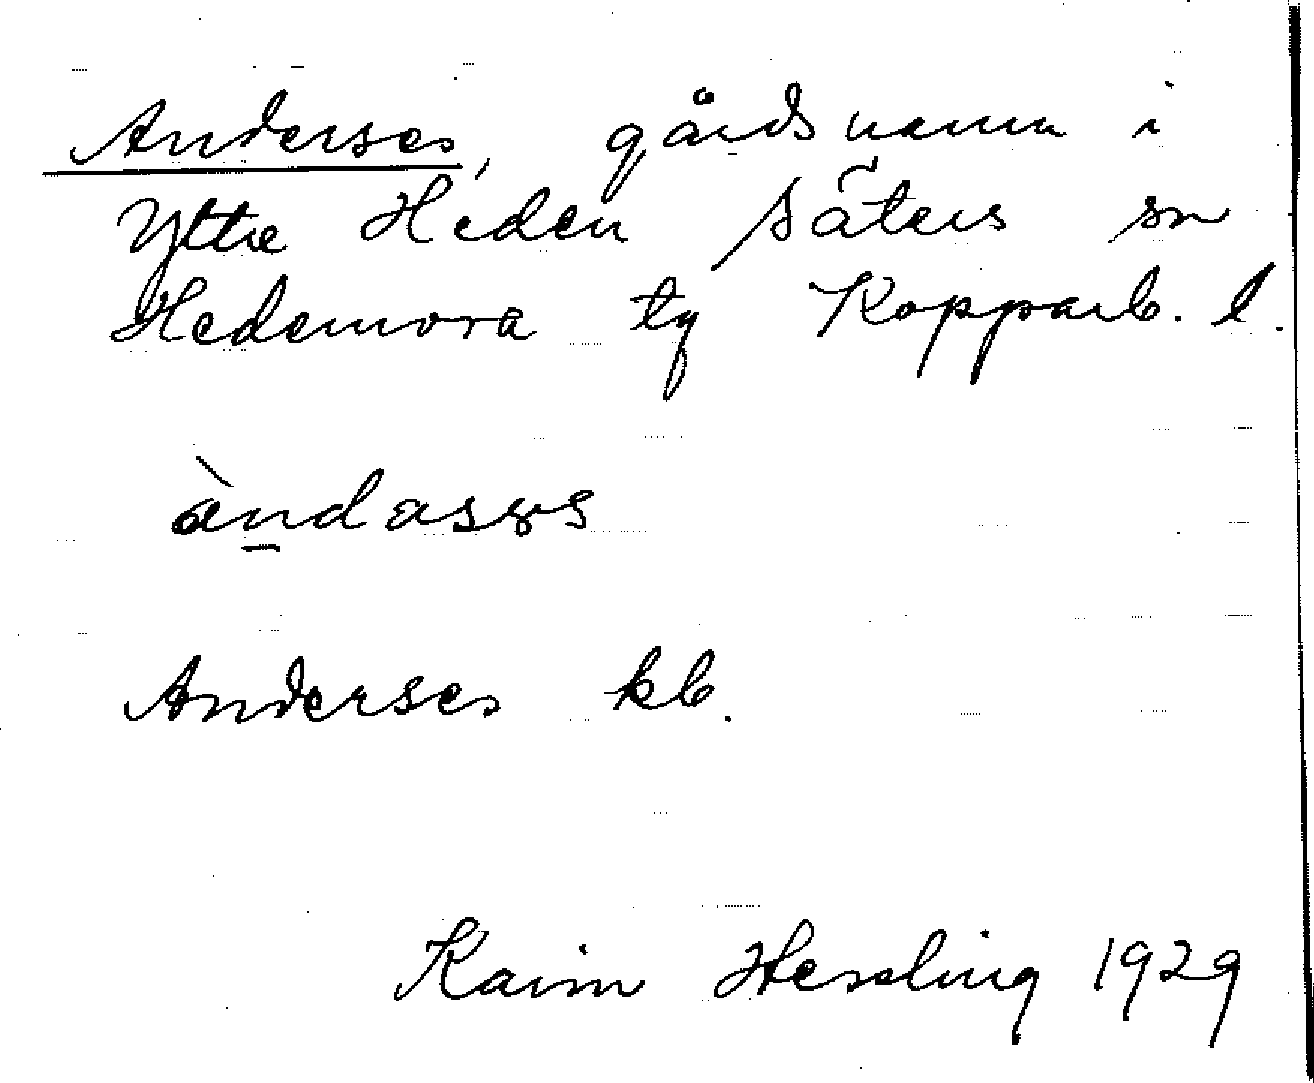 Anderses, gårdsnamn i
Yttre Heden Säters sn
Hedemora tg Kopparb. l.
àndasəs
Anderses kb.
Karin Hessling 1929